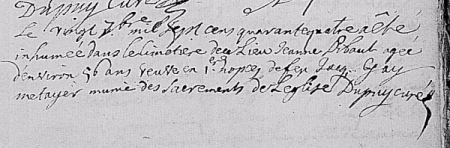 Dupuy Curé
Le Vingt 7bre mil sept cens quarante quatre a été
inhumée dans le Cimetiere de ce Lieu Jeanne agée
d'environ 56 ans veuve en 1res nopces de feu Jacq.
metayer munie des Sacrements de Leglise Dupuy curé